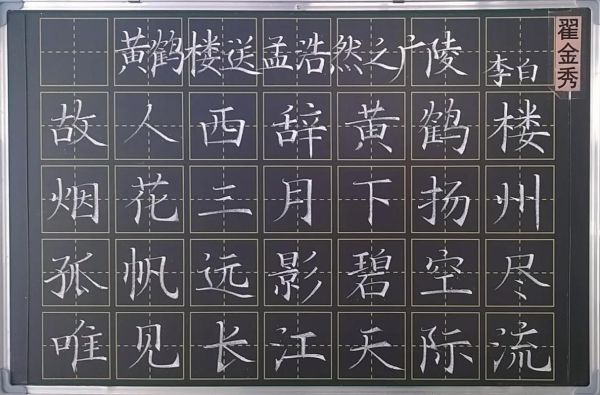 黄鹤楼送孟浩然之广陵 李白
翟金秀
故人西辞黄鹤楼
烟花三月下扬州
孤帆远影碧空尽
唯见长江天际流